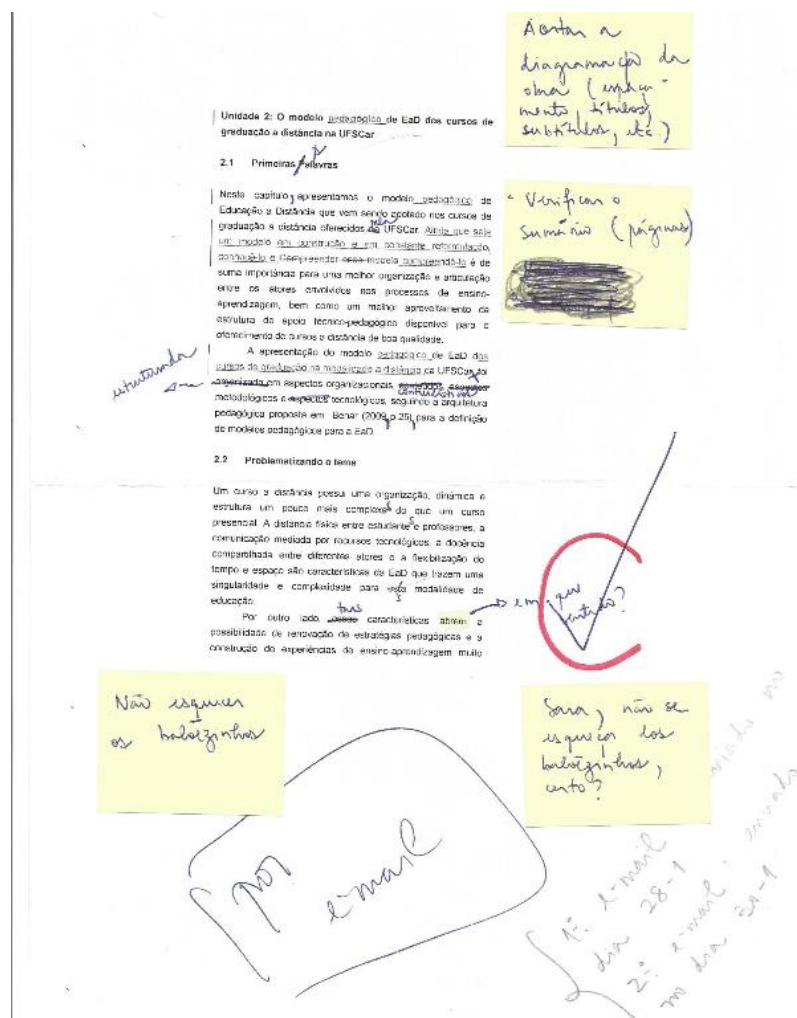 Acertar a
diagramação da
obra (espaça-
mento, títulos,
subtítulos, etc.)
Unidade 2: O modelo pedagógico de EaD dos cursos de
graduação a distância na UFSCar
2.1 Primeiras Palavras
p
- Verificar o
sumário (páginas)
Neste capítulo, apresentamos o modelo pedagógico de
Educação a Distância que vem sendo adotado nos cursos de
graduação a distância oferecidos da UFSCar. Ainda que seja
pela
um modelo em construção e em constante reformulação,
conhecê-lo e Compreender esse modelo compreendê-lo é de
suma importância para uma melhor organização e articulação
entre os atores envolvidos nos processos de ensino-
aprendizagem, bem como um melhor aproveitamento da
estrutura de apoio técnico-pedagógico disponível para o
oferecimento de cursos a distância de boa qualidade.
A apresentação do modelo pedagógico de EaD dos
cursos de graduação na modalidade a distância da UFSCar foi
estruturada
organizada em aspectos organizacionais,
metodológicos e aspectos tecnológicos, seguindo a arquitetura
pedagógica proposta em Behar (2009, p 25), para a definição
de modelos pedagógicos para a EaD
2.2 Problematizando o tema
Um curso a distância possui uma organização, dinâmica e
estrutura um pouco mais complexa do que um curso
s
presencial. A distância física entre estudante e professores, a
s
comunicação mediada por recursos tecnológicos, a docência
compartilhada entre diferentes atores e a flexibilização do
tempo e espaço são características da EaD que trazem uma
singularidade e complexidade para esta modalidade de
s
educação.
em que
sentido?
tais
Por outro lado, essas características abrem a
possibilidade de renovação de estratégias pedagógicas e a
construção de experiências de ensino-aprendizagem muito
Não esquecer
os balõezinhos
Sara, não se
esqueça dos
balõezinhos,
certo?
por
e-mail
1º e-mail enviado no
dia 28-1
2º e-mail: enviado
no dia 30-1